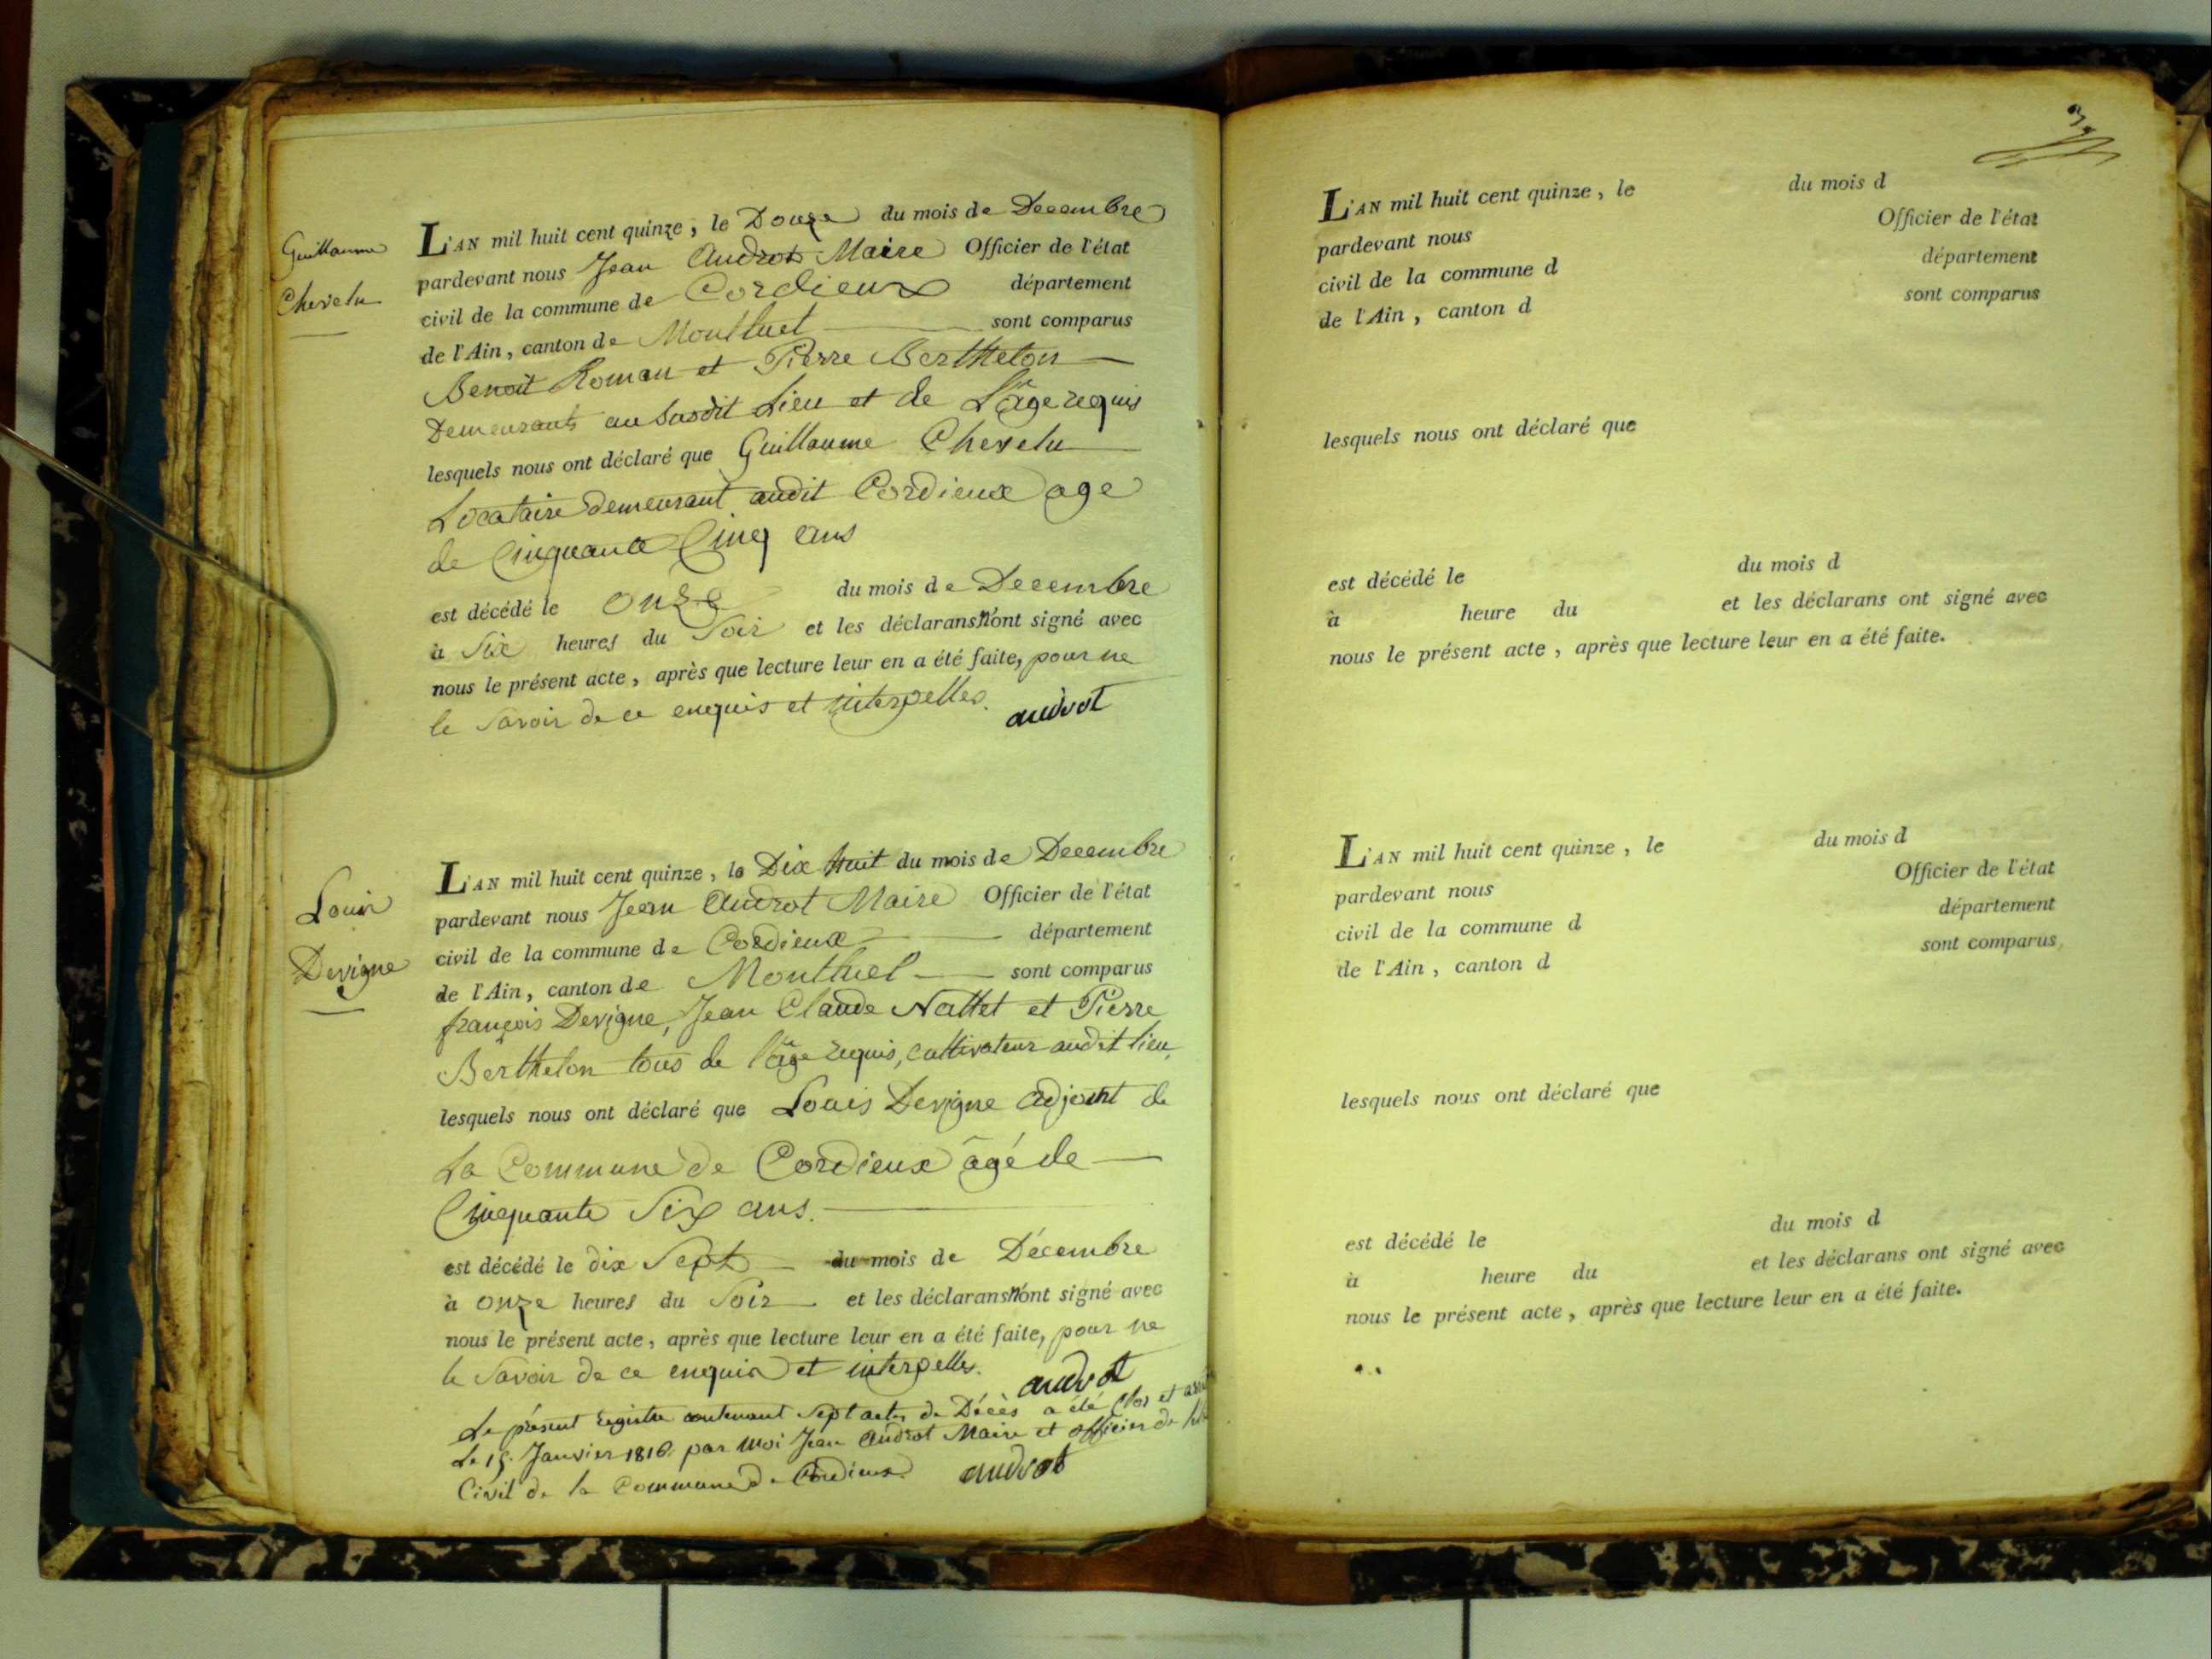 Guillaume
Chevelu
L'AN mil huit cent quinze, le Douze du mois de Decembre
pardevant nous Jean Audrot Maire Officier de l'état
civil de la commune de Cordieux département
de l'Ain, canton de Montluel sont comparus
Benoit Roman et Pierre Berthelon
Demeurants au Susdit Lieu et de L'âge requis
lesquels nous ont déclaré que Guillaume Chevelu
Locataire demeurant audit Cordieux age
de Cinquante Cinq ans
est décédé le onze du mois de Decembre
à Six heures du Soir et les déclarans n'ont signé avec
nous le présent acte, après que lecture leur en a été faite, pour ne
le Savoir de ce enquis et interpelles.
audrot
Louis
Devigne
L'AN mil huit cent quinze, le Dix huit du mois de Decembre
pardevant nous Jean Audrot Maire Officier de l'état
civil de la commune de Cordieux département
de l'Ain, canton de Montluel sont comparus
françois Devigne, Jean Claude Nallet et Pierre
Berthelon tous de l'âge requis, cultivateur audit lieu,
lesquels nous ont déclaré que Louis Devigne adjoint de
La Commune de Cordieux âgé de
Cinquante Six ans.
est décédé le dix Sept du mois de Décembre
à onze heures du Soir et les déclarans n'ont signé avec
nous le présent acte, après que lecture leur en a été faite, pour ne
le Savoir de ce enquis et interpelles.
audrot
Le présent registre contenant Sept actes de Décès a été Clos et
Le 15. Janvier 1816. par moi Jean Audrot Maire et officier de
Civil de la Commune de Cordieux.
audrot
L'AN mil huit cent quinze, le du mois d
pardevant nous Officier de l'état
civil de la commune d département
de l'Ain, canton d sont comparus
lesquels nous ont déclaré que
est décédé le du mois d
à heure du et les déclarans ont signé avec
nous le présent acte, après que lecture leur en a été faite.
L'AN mil huit cent quinze, le du mois d
pardevant nous Officier de l'état
civil de la commune d département
de l'Ain, canton d sont comparus
lesquels nous ont déclaré que
est décédé le du mois d
à heure du et les déclarans ont signé avec
nous le présent acte, après que lecture leur en a été faite.